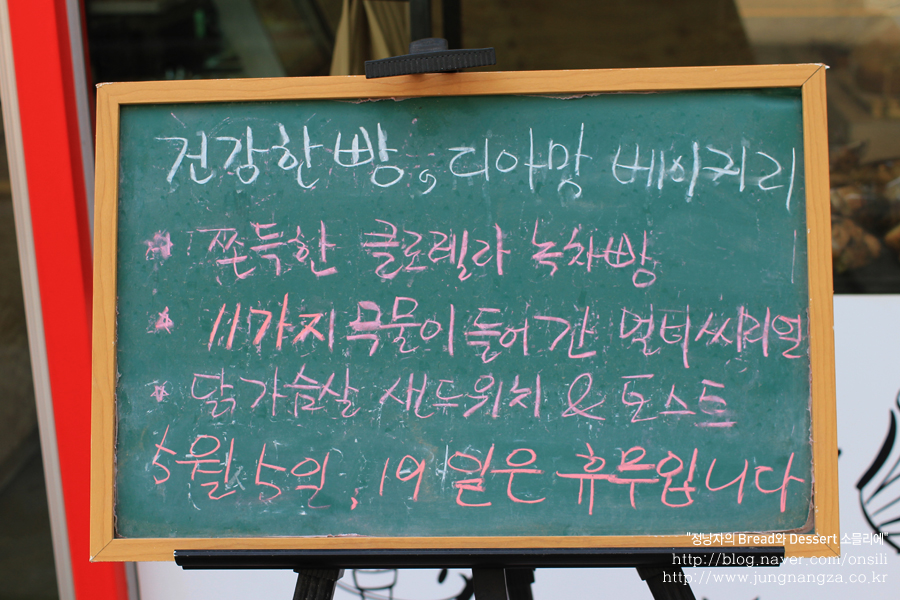 건강한 빵, 디아망 베이커리
* 쫀득한 클로렐라 녹차빵
* 11가지 곡물이 들어간 멀티씨리얼
* 닭가슴살 샌드위치 & 토스트
5월 5일, 19일은 휴무입니다
"정낭자의 Bread와 Dessert 소믈리에"
http://blog.naver.com/onsili
http://www.jungnangza.co.kr